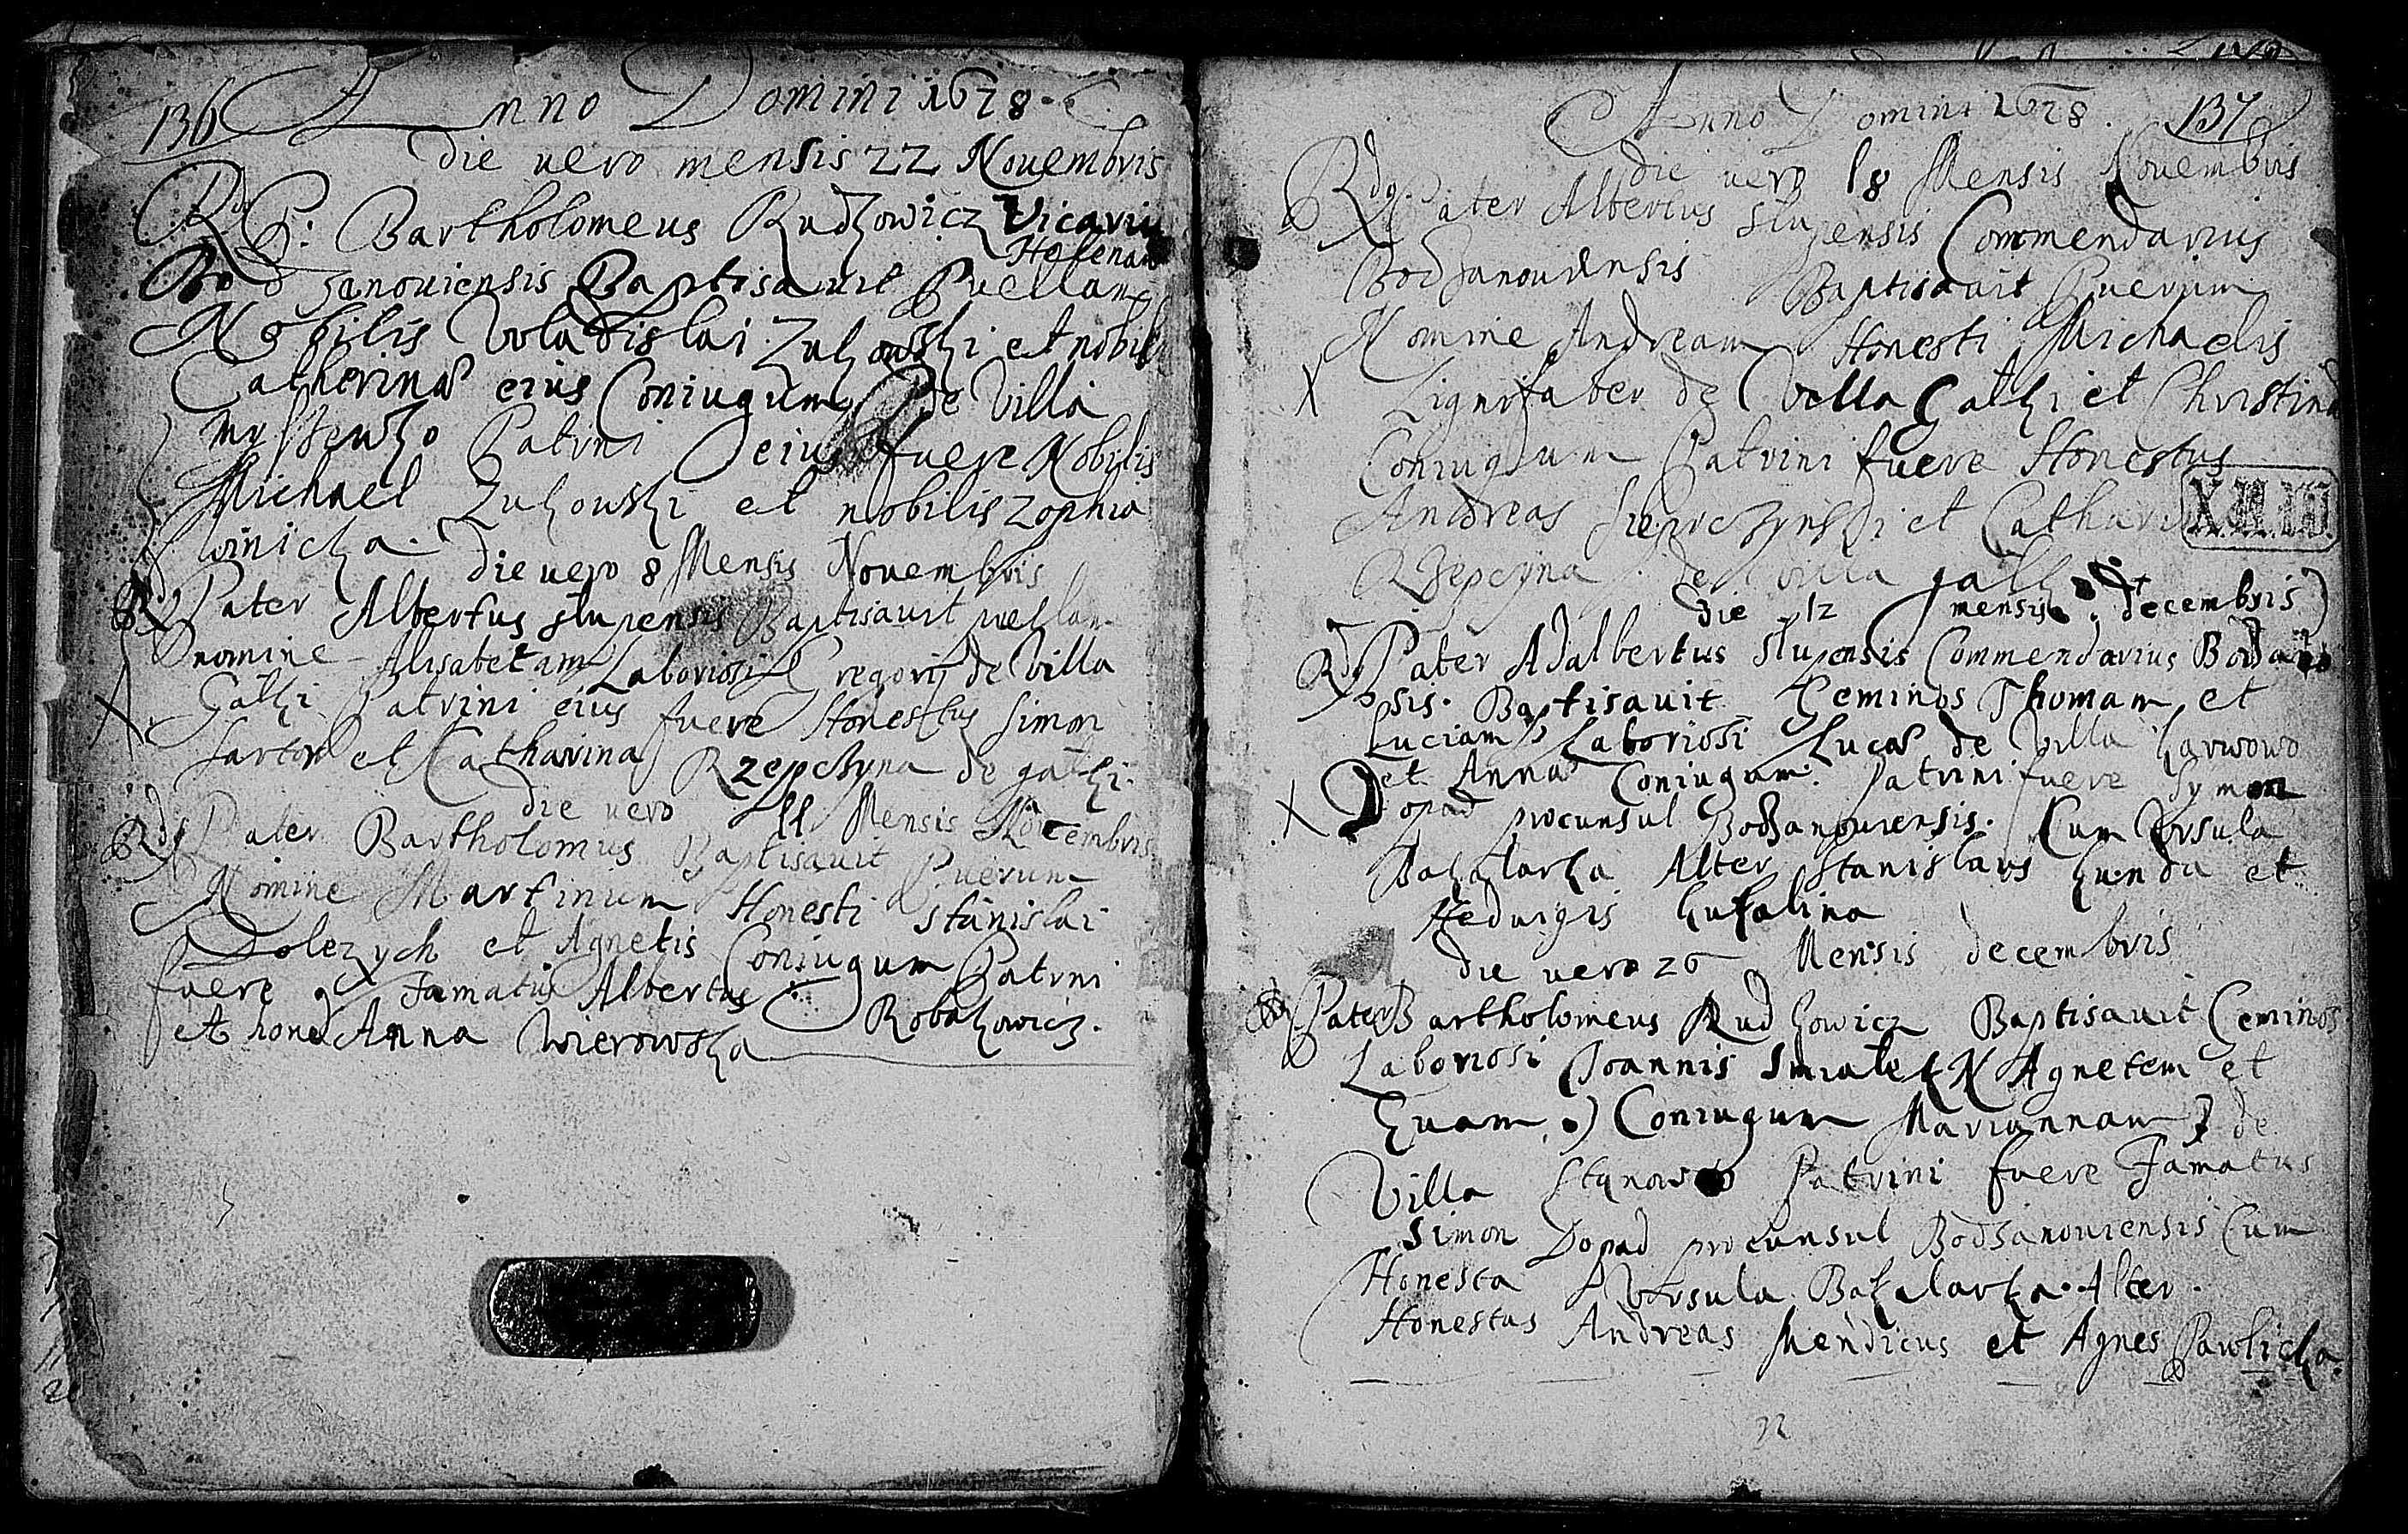 136 Anno Domini 1678.
die vero mensis 22 Novembris
Rdus P: Bartholomeus Rudkowicz Vicarius
Helenam
Bodzanoviensis Baptisavit Puellam
Nobilis Vladislai Zukowski et nobilis
Catherinae eius Coniugum De Villa
Patrini eius fuere Nobilis
Michael Zukowski et nobilis Zophia
winicka. die vero 8 Mensis Novembris
Rdus Pater Albertus slupensis Baptisavit puellam
nomine Alisabetam Laboriosi Gregorij de Villa
Gałki Patrini eius fuere Honestus Simon
sartor et Catharina Rzepczyna de gałki.
die vero 11 Mensis
Rdus Pater Bartholomus Baptisavit Puerum
Nomine Martinum Honesti Stanislai
Dolezych et Agnetis Coniugum Patrni
fuere Famatus Albertus Robakowicz.
et hone Anna Wierowska
Anno Domini 1678. 137
die vero 18 Mensis Novembris
Rdus Pater Albertus Slupensis Commendarius
Bodzanoviensis Baptisavit Puerum
Nomine Andream Honesti Michaelis
X Lignifaber de Villa Gałki et Christina
Coniugum Patrini fuere Honestus
Andreas et
Rzepczyna de villa gałki
die 12 mensis decembris
Rdus Pater Adalbertus Slupensis Commendarius
nsis. Baptisavit Geminos Thomam et
Luciam Laboriosi Lucae de Villa karwowo
X et Anna Coniugum. Patrini fuere Symon
Dopad procunsul Bodzanoviensis. Cum Vrsula
Bakalarka Alter Stanislaus et
Hedvigis
die vero 26 Mensis decembris
Pater Bartholomeus Rudkowicz Baptisavit Geminos
Laboriosi Joannis N Agnetem et
Evam Coniugum Mariannam de
Villa Patrini fuere Famatus
Simon Dopad procunsul Bodzanoviensis Cum
Honesta Vrsula Bakalarka. Alter.
Honestus Andreas Mendicus et Agnes Pawlicka